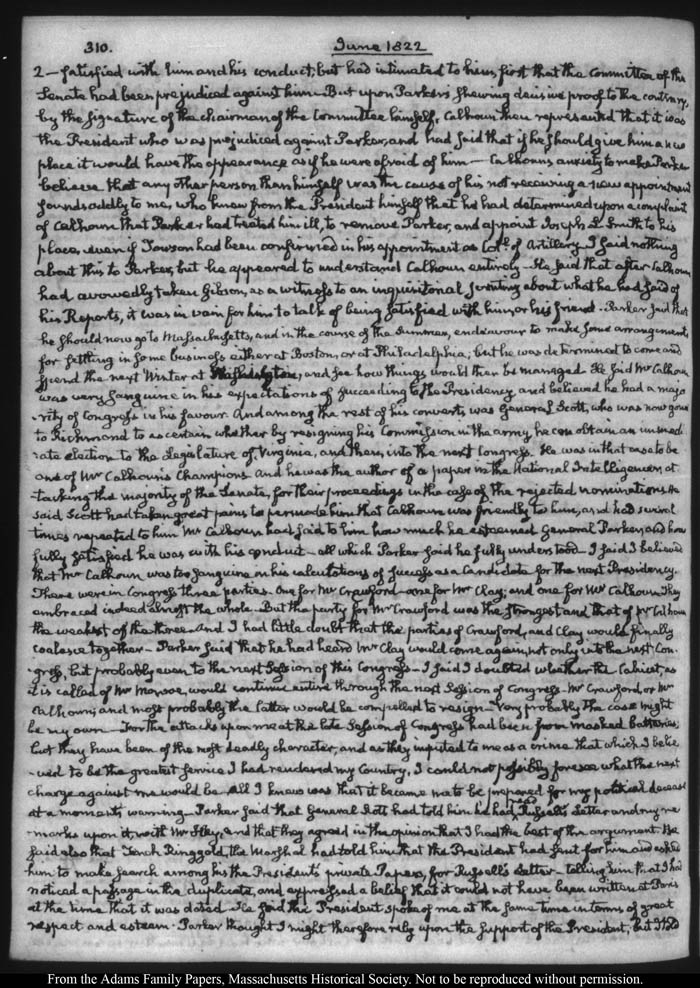 310.
June 1822
2 — satisfied with him and his conduct, but had intimated to him, first that the Committee of the
Senate had been prejudiced against him — But upon Parker's shewing decisive proof to the contrary,
by the signature of the chairman of the Committee himself, Calhoun then represented that it was
the President who was prejudiced against Parker, and had said that if he should give him a new
place it would have the appearance as if he were afraid of him — Calhoun's anxiety to make Parker
believe that any other person than himself was the cause of his not receiving a new appointment
sounds oddly to me, who know from the President himself that he had determined upon a complaint
of Calhoun that Parker had treated him ill, to remove Parker, and appoint Joseph L. Smith to his
place, even if Towson had been confirmed in his appointment as Col.l of Artillery. I said nothing
about this to Parker, but he appeared to understand Calhoun entirely — He said that after Calhoun
had avowedly taken Gibson, as a witness to an inquisitorial scrutiny about what he had said of
his Reports, it was in vain for him to talk of being satisfied with him, or his friend. Parker said that
he should now go to Massachusetts, and in the course of the Summer, endeavour to make some arrangement
for settling in some business either at Boston, or at Philadelphia; but he was determined to come and
spend the next Winter at Washington, and see how things would then be managed. He said Mr Calhoun
was very sanguine in his expectations of succeeding to the Presidency, and believed he had a majo
-rity of Congress in his favour. And among the rest of his converts, was General Scott, who was now gone
to Richmond to ascertain whether by resigning his Commission in the army he can obtain an immedi
-ate election to the Legislature of Virginia, and then, into the next Congress. He was in that case to be
one of Mr Calhoun's Champions. And he was the author of a paper in the National Intelligencer, at
-tacking the majority of the Senate, for their proceedings in the case of the rejected nominations. He
said Scott had taken great pains to persuade him that Calhoun was friendly to him, and had several
times repeated to him Mr Calhoun had said to him how much he esteemed General Parker, and how
fully satisfied he was with his conduct — all which Parker said he fully understood — I said I believed
that Mr Calhoun was too sanguine in his calculations of success as a Candidate for the next Presidency.
There were in Congress three parties. One for Mr Crawford — one for Mr Clay, and one for Mr Calhoun. They
embraced indeed almost the whole — But the party for Mr Crawford was the strongest and that of Mr Calhoun
the weakest of the three. And I had little doubt that the parties of Crawford, and Clay would finally
coalesce together — Parker said that he had heard Mr Clay would come again, not only into the next Con-
gress, but probably even to the next Session of this Congress — I said I doubted whether the Cabinet, as
it is called of Mr Monroe, would continue entire through the next Session of Congress. Mr Crawford, or Mr
Calhoun, and most probably the latter would be compelled to resign — Very probably the case might
be my own — For the attacks upon me at the late Session of Congress had been from masked batteries,
but they have been of the most deadly character, and as they imputed to me as a crime that which I belie
-ved to be the greatest service I had rendered my Country, I could not possibly foresee what the next
charge against me would be. All I knew was that it became me to be prepared for my political decease
at a moment's warning — Parker said that General Scott had told him he had read Russell's Letter and my re
marks upon it, with Mr Hay, and that they agreed in the opinion that I had the best of the argument. He
said also that Tench Ringgold, the Marshal had told him that the President had sent for him and asked
him to make search among his the President's private Papers, for Russell's Letter — telling him that I had
noticed a passage in the duplicate, and expressed a belief that it could not have been written at Paris
at the time that it was dated — He said the President spoke of me at the same time in terms of great
respect and esteem. Parker thought I might therefore rely upon the support of the President, but I told
From the Adams Family Papers, Massachusetts Historical Society. Not to be reproduced without permission.